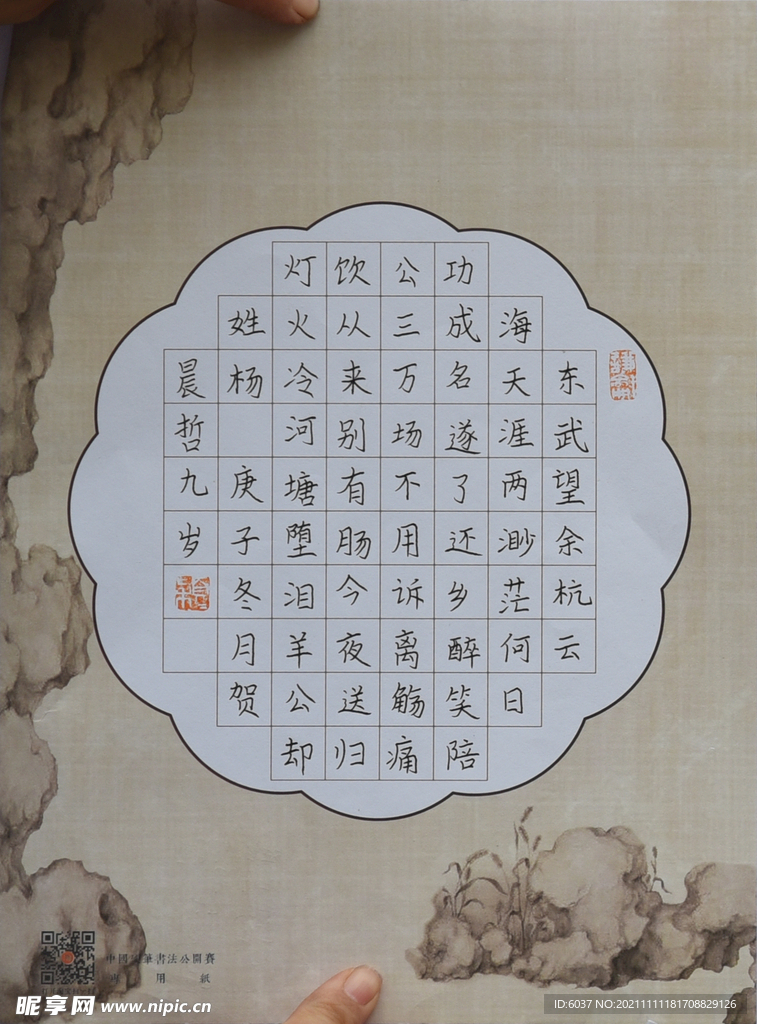 东武望余杭云
海天涯两渺茫何日
功成名遂了还乡醉笑陪
公三万场不用诉离觞痛
饮从来别有肠今夜送归
灯火冷河塘堕泪羊公却
姓杨 庚子冬月贺
晨哲九岁
中國硬筆書法公開賽
專用紙
昵享网 www.nipic.cn
ID:6037 NO:20211111181708829126